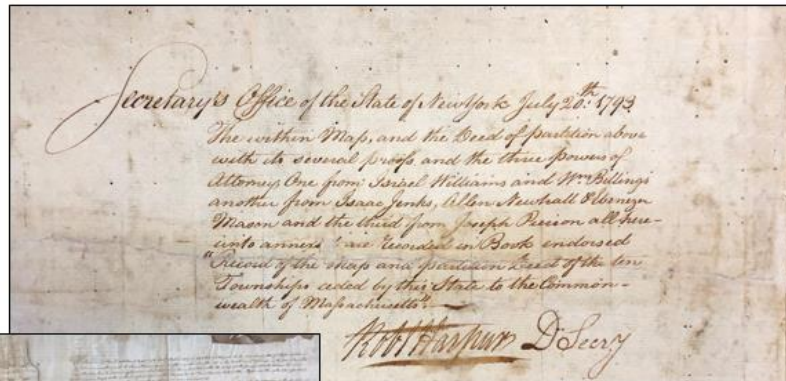 Secretary's Office of the State of New York July 20th. 1793
The within Map, and the Deed of partition above
with its several proofs and the three powers of
Attorney, One from Israel Williams and Wm. Billings
another from Isaac Jenks, Allen Newhall & Ebenezr
Mason and the third from Joseph Pierson all here-
unto annexed are Recorded in Book endorsed
"Record of the Map and partition Deed of the ten
Townships ceded by this State to the Common-
wealth of Massachusetts"
Robt Harpur D Secry